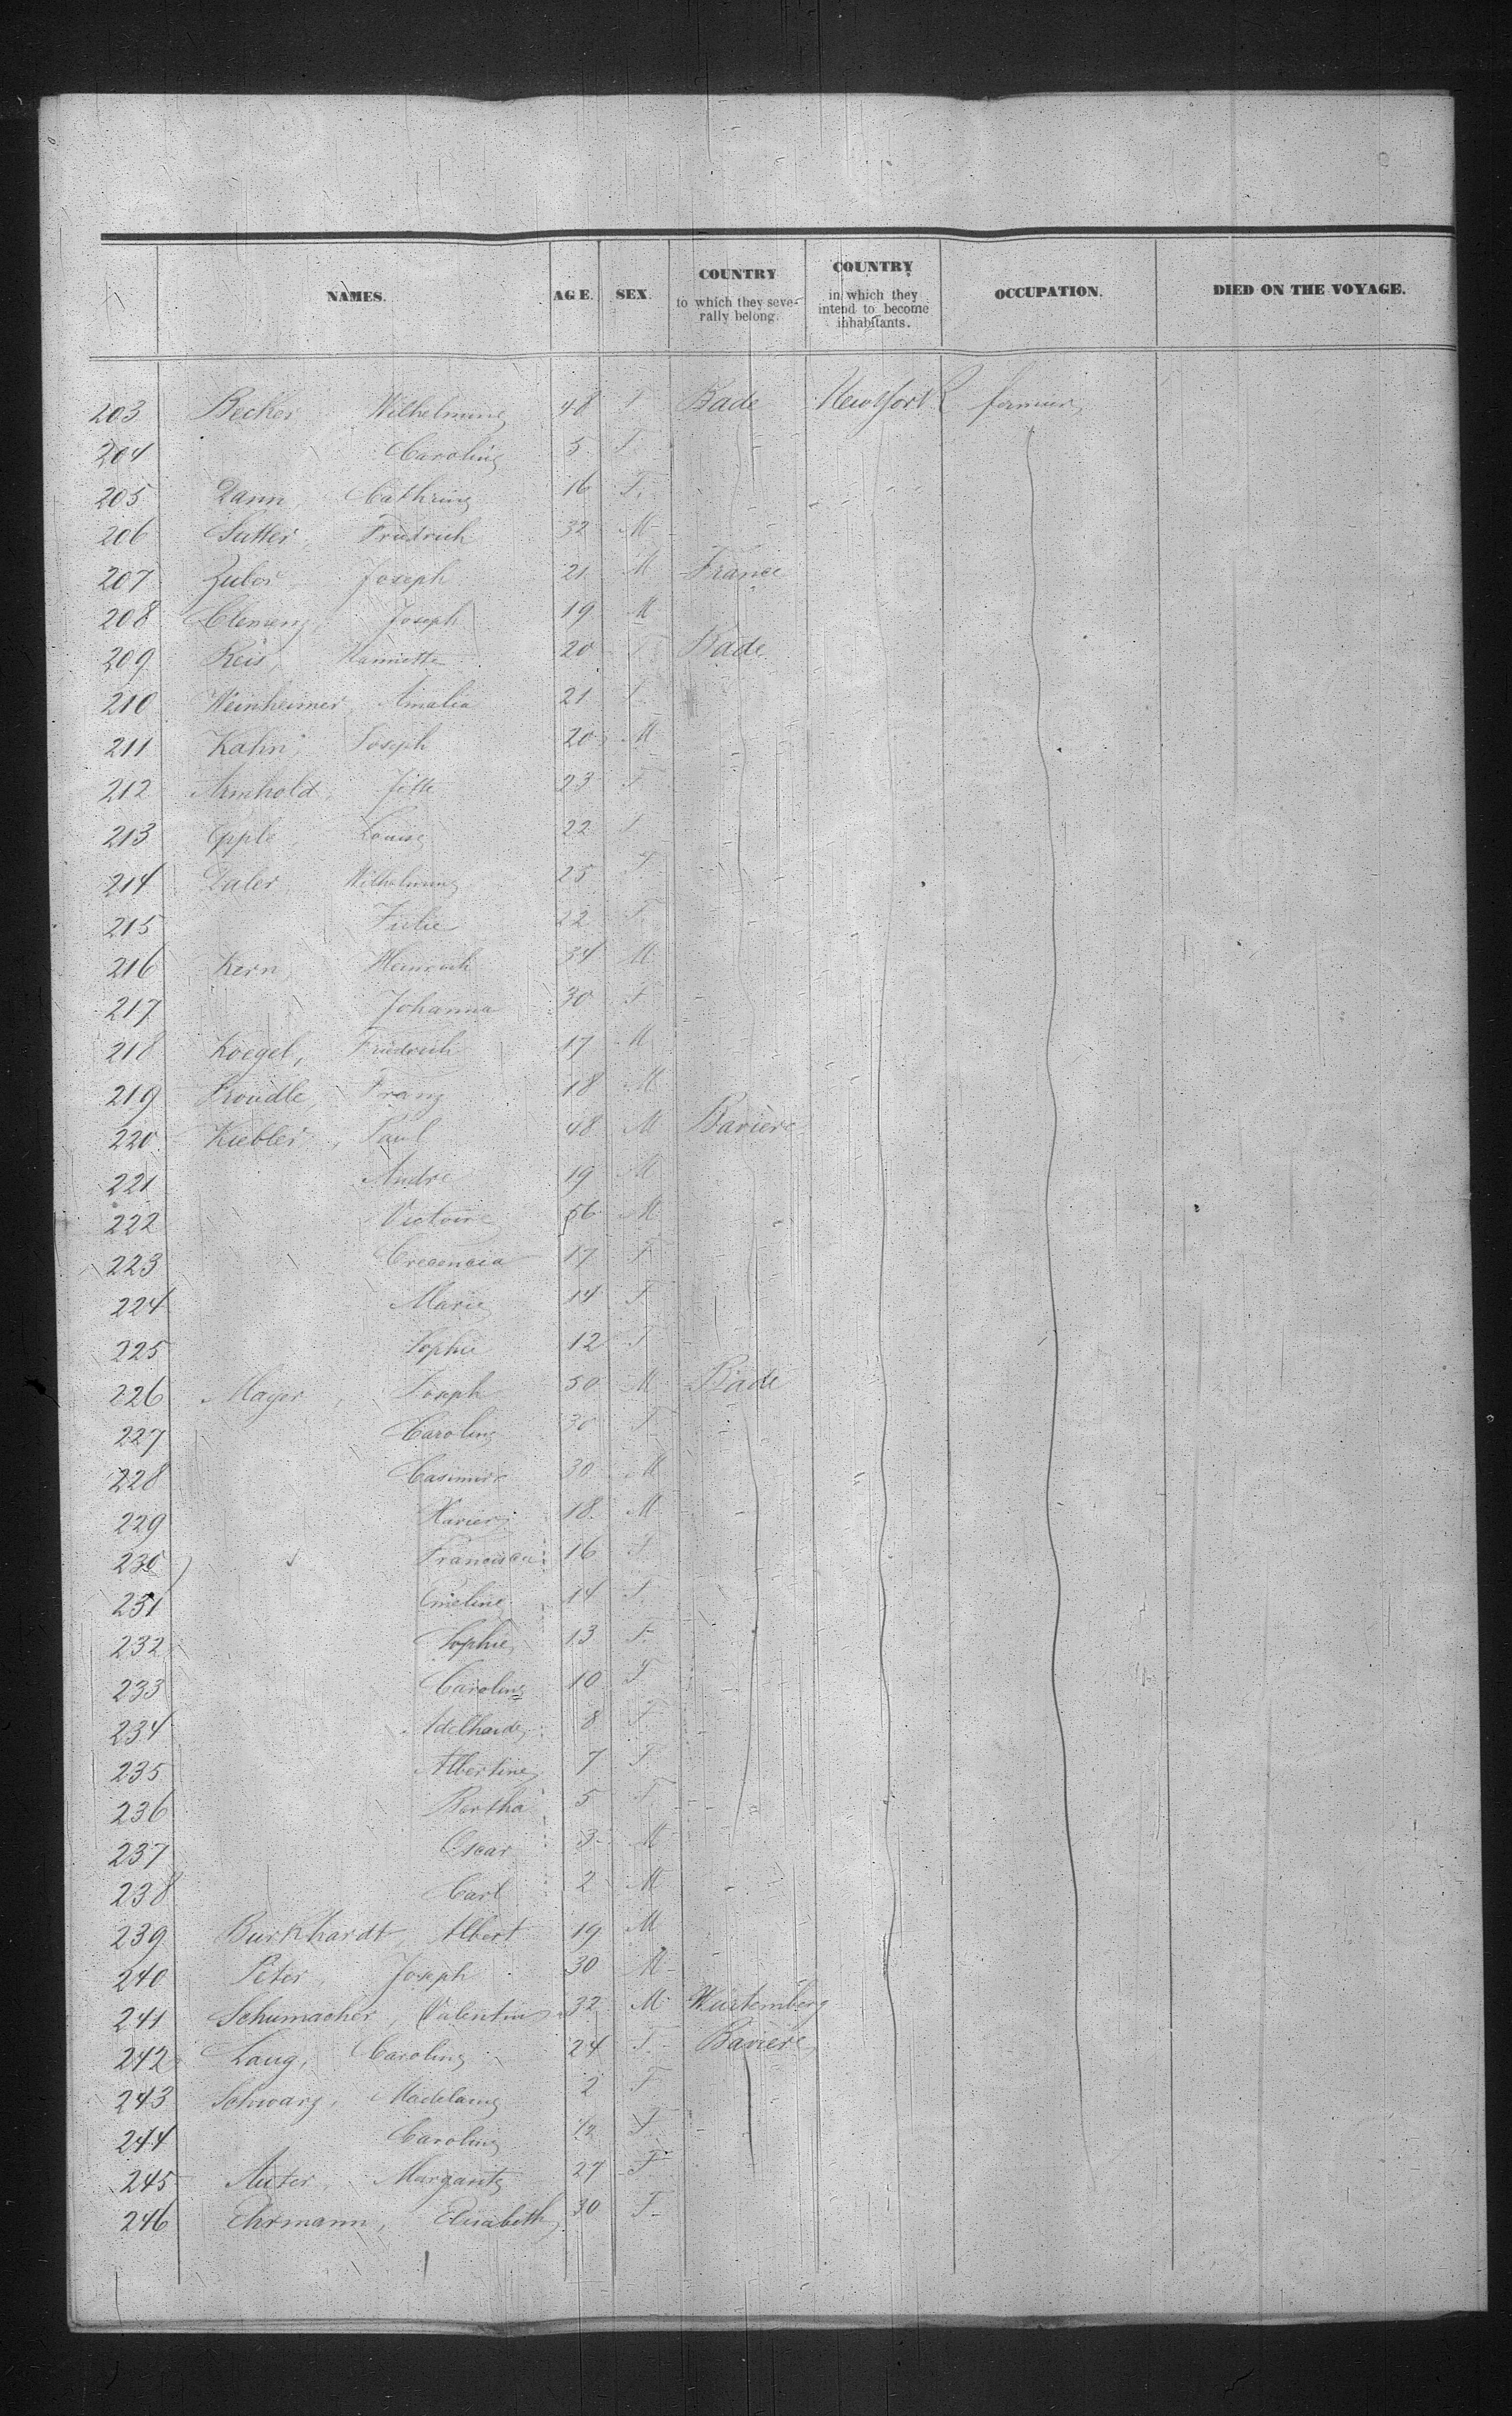 NAMES. AGE. SEX. COUNTRY to which they seve- rally belong. COUNTRY in which they intend to become inhabitants. OCCUPATION. DIED ON THE VOYAGE.
203 Becker Wilhelmine 48 F Bade New York farmer
204 Caroline 5 F
205 Dann, Cathrine 16 F.
206 Sutter, Friedrich 32 M
207 Zuber Joseph 21 M France
208 Clemenz, Joseph 19 M
209 Reis, Hanriette 20 F Bade
210 Weinheimer, Amalia 21 F.
211 Kahn, Joseph 20 M
212 Arnhold, Jette 23 F
213 Epple, Louise 22 F
214 Daler Wilhelmine 25 F
215 Julie 22 F.
216 Kern, Heinrich 34 M
217 Johanna 30 F
218 Koegel, Friedrich 17 M
219 Franz 18 M
220 Kiebler, Paul 48 M Baviere
221 Andre 19 M
222 Victoire 56 M
223 Crecencia 17 F
224 Marie 14 F
225 Sophie 12 F
226 Mayer, Joseph 50 M Bade
227 Caroline 30 F
228 Casimir 30 M
229 Xavier 18. M
230 Francisca 16 F
231 Emeline 14 F.
232 Sophie, 13 F.
233 Caroline 10 F
234 Adelhaide, 8 F
235 Albertine, 7 F.
236 Bertha 5 F
237 Oscar 3 M
238 Carl 2 M
239 Burkhardt, Albert 19 M
240 Peter, Joseph 30 M
241 Schumacher, Valentin 32 M Wurtemberg
242 Laug, Caroline 24 F. Baviere
243 Schwarz, Madelaine 2 F
244 Caroline 1/2 F
245 Auter, Margarite 27 F
246 Ehrmann, Elisabeth 30 F